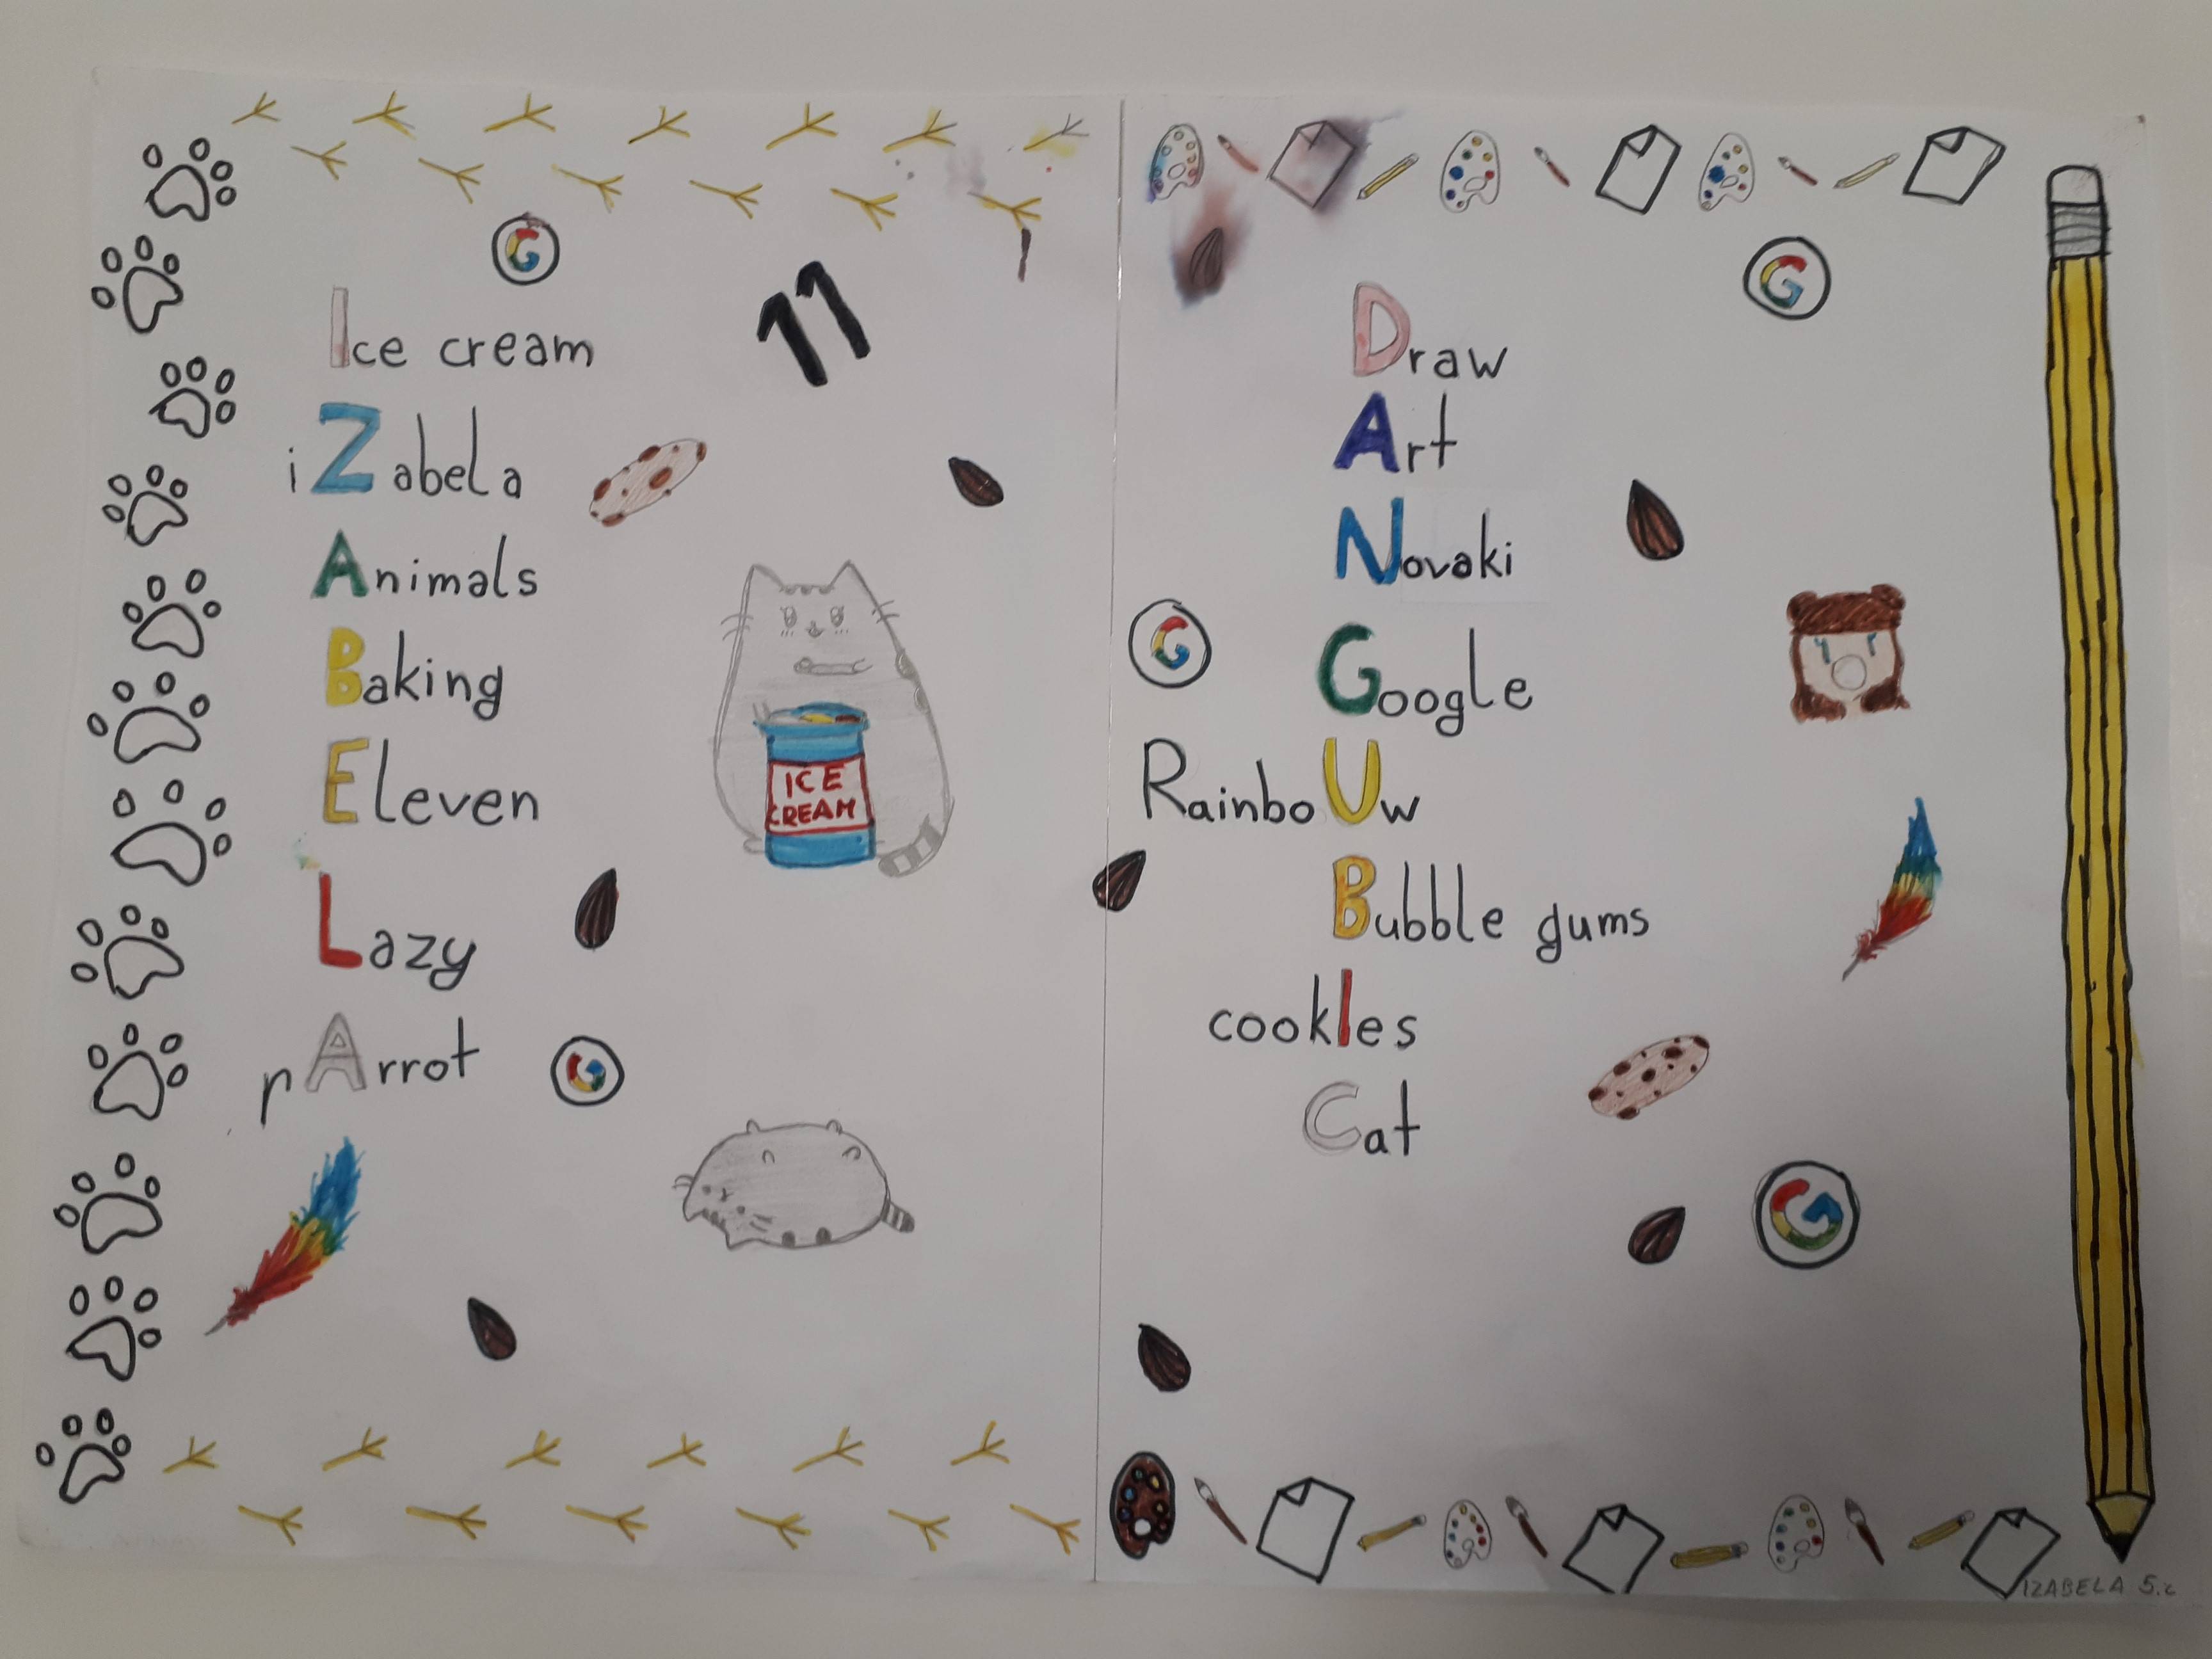 G
11
Ice cream
iZabela
Animals
Baking
Eleven
Lazy
pArrot
G
ICE
CREAM
G
Draw
Art
Novaki
G
Google
RainboUw
Bubble gums
cookIes
Cat
G
IZABELA 5.c